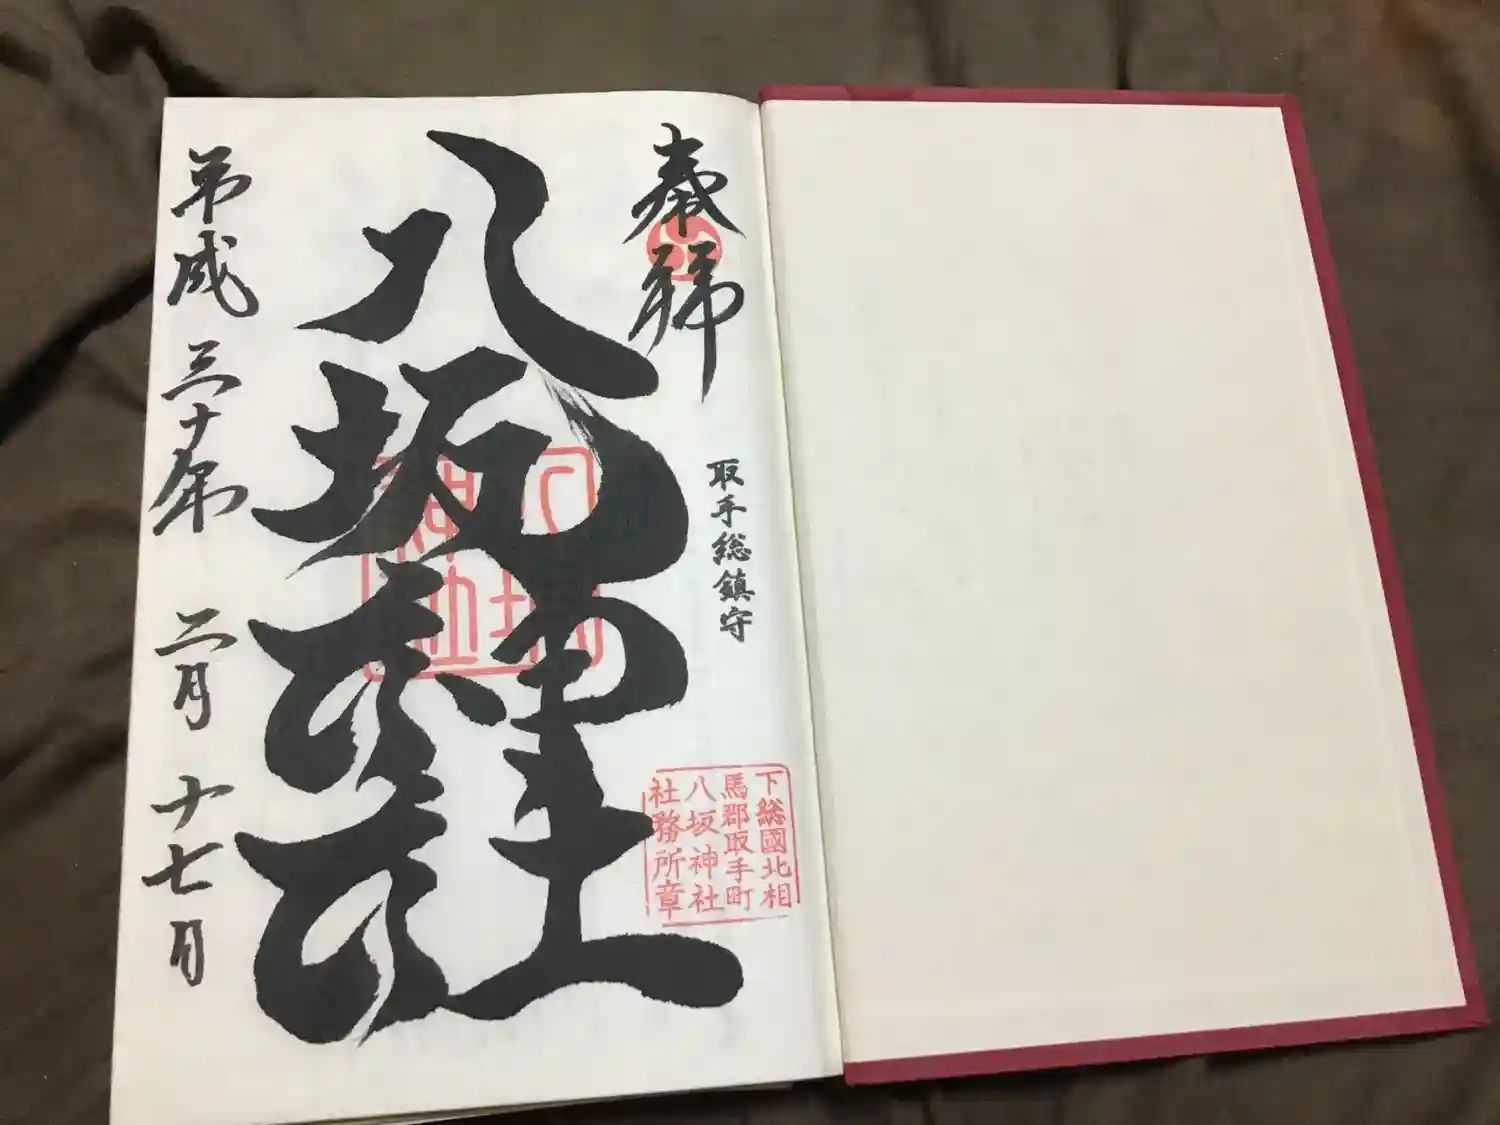 奉拝
取手総鎮守
下総國北相
馬郡取手町
八坂神社
社務所章
八坂神社
八坂
神社
平成三十年二月十七日